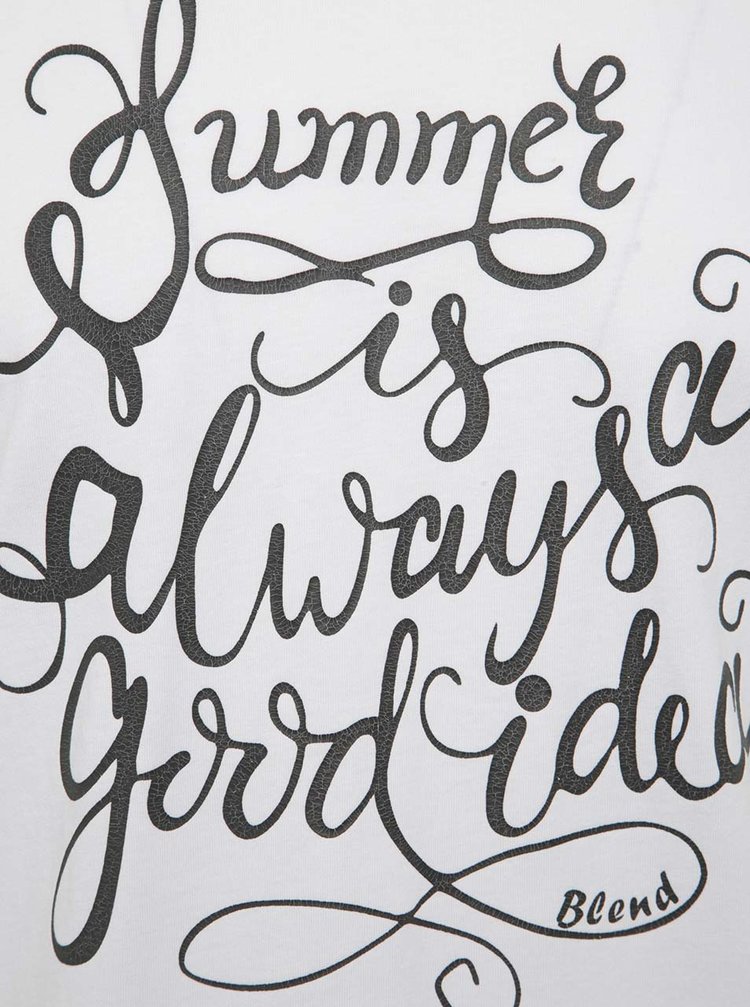 Summer
is
always a
good idea
Blend